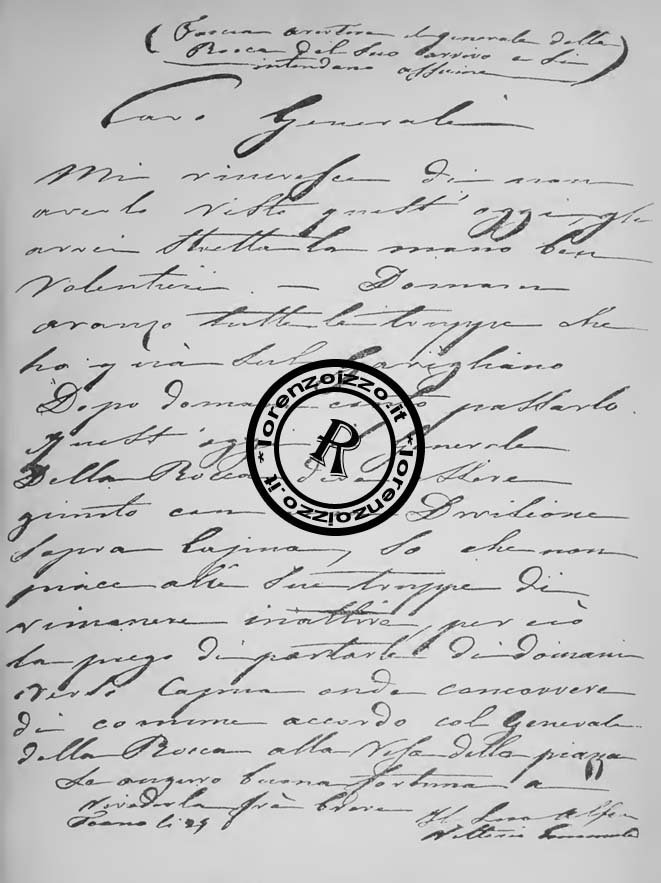 ( Faccia avertire il generale della
Rocca del suo arrivo e si
intendano assieme )
Caro Generale
Mi rincresce di non
averlo visto quest'oggi, gli
avrei stretta la mano ben
Volentieri. — Domani
avanzo tutte le truppe che
ho già sul Garigliano
Dopo domani passarlo.
quest'oggi il Generale
Della Rocca deve essere
giunto con Divisione
sopra Capua, So che non
piace alle Sue truppe di
rimanere inattive, perciò
la prego di portarle di domani
verso Capua onde concorrere
di comune accordo col Generale
della Rocca alla resa della piazza
Le auguro buona fortuna a
rivederla frà breve
Teano li 29
Il Suo Aff
Vittorio Emanuele
*lorenzoizzo.it*lorenzoizzo.it
R